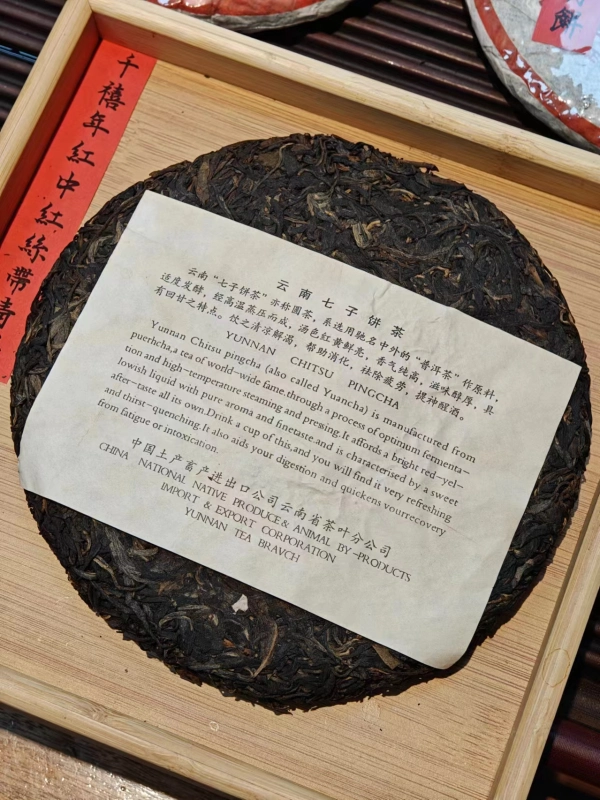 千禧年紅中紅絲帶
餅
云南七子饼茶
云南“七子饼茶”亦称圆茶，系选用驰名中外的“普洱茶”作原料，
适度发酵，经高温蒸压而成，汤色红黄鲜亮，香气纯高，滋味醇厚，具
有回甘之特点。饮之清凉解渴，帮助消化，祛除疲劳，提神醒酒。
YUNNAN CHITSU PINGCHA
Yunnan Chitsu pingcha (also called Yuancha) is manufactured from
puerhcha,a tea of world-wide fame,through a process of optimum fermenta-
tion and high-temperature steaming and pressing.It affords a bright red-yel-
lowish liquid with pure aroma and finetaste.and is characterised by a sweet
after-taste all its own.Drink a cup of this,and you will find it very refreshing
and thirst-quenching.It also aids your digestion and quickens vourrecovery
from fatigue or intoxication.
中国土产畜产进出口公司云南省茶叶分公司
CHINA NATIONAL NATIVE PRODUCE & ANIMAL BY-PRODUCTS
IMPORT & EXPORT CORPORATION
YUNNAN TEA BRAVCH